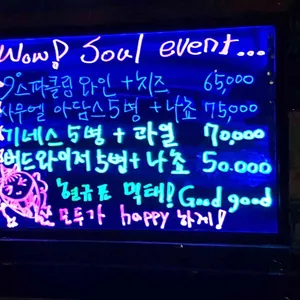 Wow! Soul event...
스파클링 와인 +치즈 65,000
사무엘 아담스 5병 + 나쵸 75,000
기네스 5병 + 과일 70,000
버드와이저 5병+ 나쵸 50.000
현금표 먹태! Good good
모두가 happy 하게!